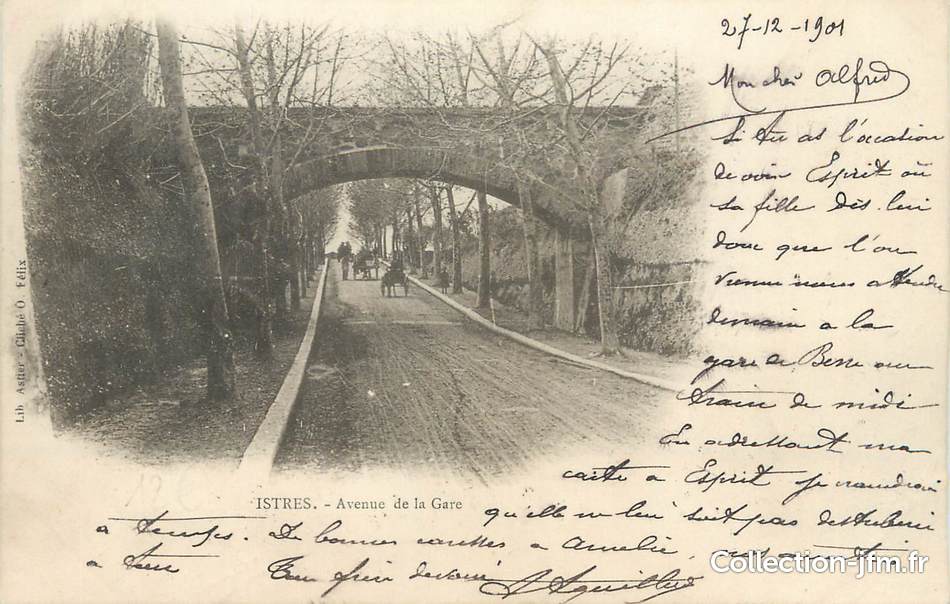 27-12-1901
Mon cher Alfred
Si tu as l'occasion
de voir Esprit ou
sa fille dis lui
donc que l'on
vienne nous attendre
demain a la
gare de Berre au
train de midi
En adressant ma
carte a Esprit je craindrais
qu'elle ne lui soit pas distribuée
a temps. De bonnes caresses a Amelie,
a tous
Ton bien dévoué
ISTRES. - Avenue de la Gare
Lib Astier - Cliché O. Félix
Collection-jfm.fr